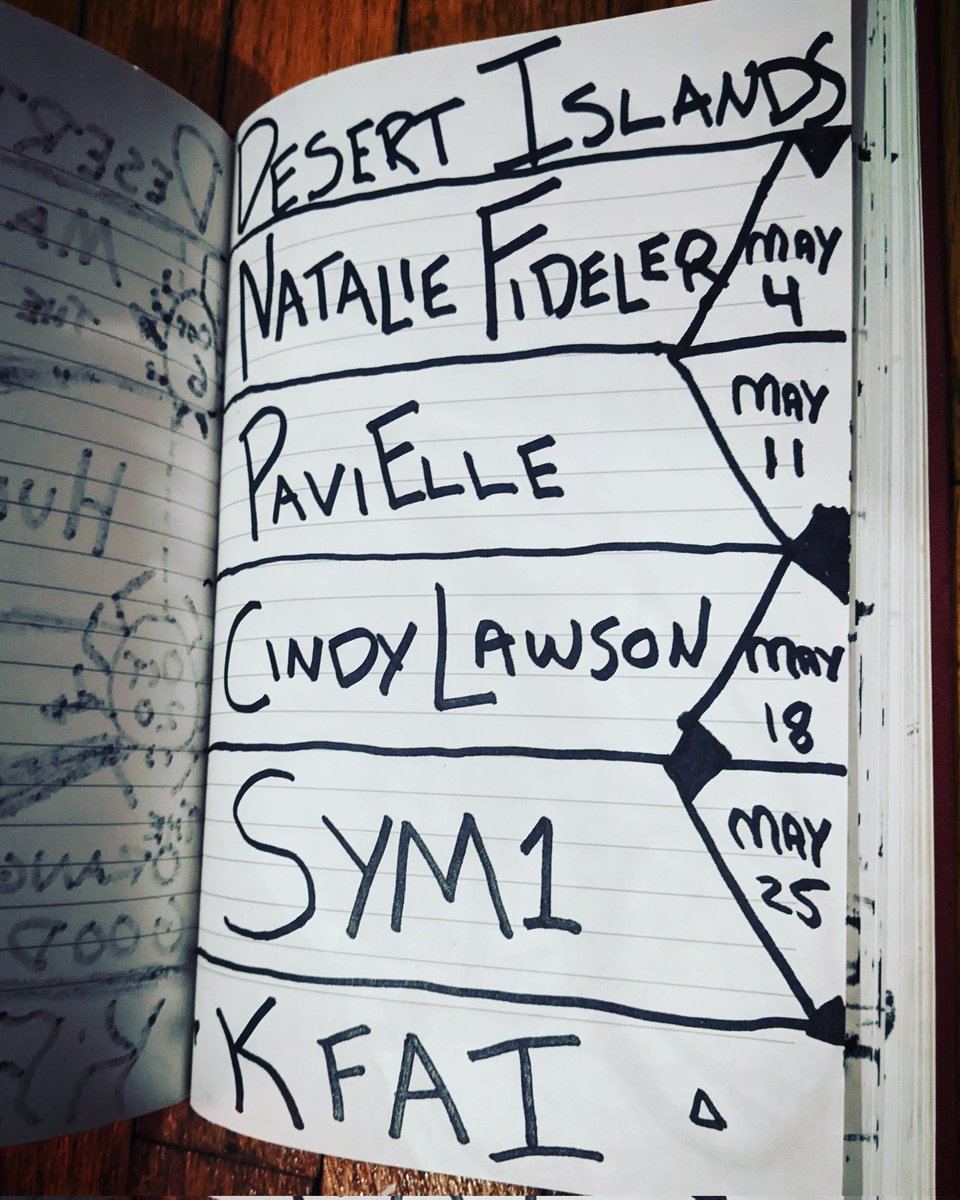 DESERT ISLANDS
NATALIE FIDELER MAY 4
PAVIELLE MAY 11
CINDY LAWSON MAY 18
SYM1 MAY 25
KFAI